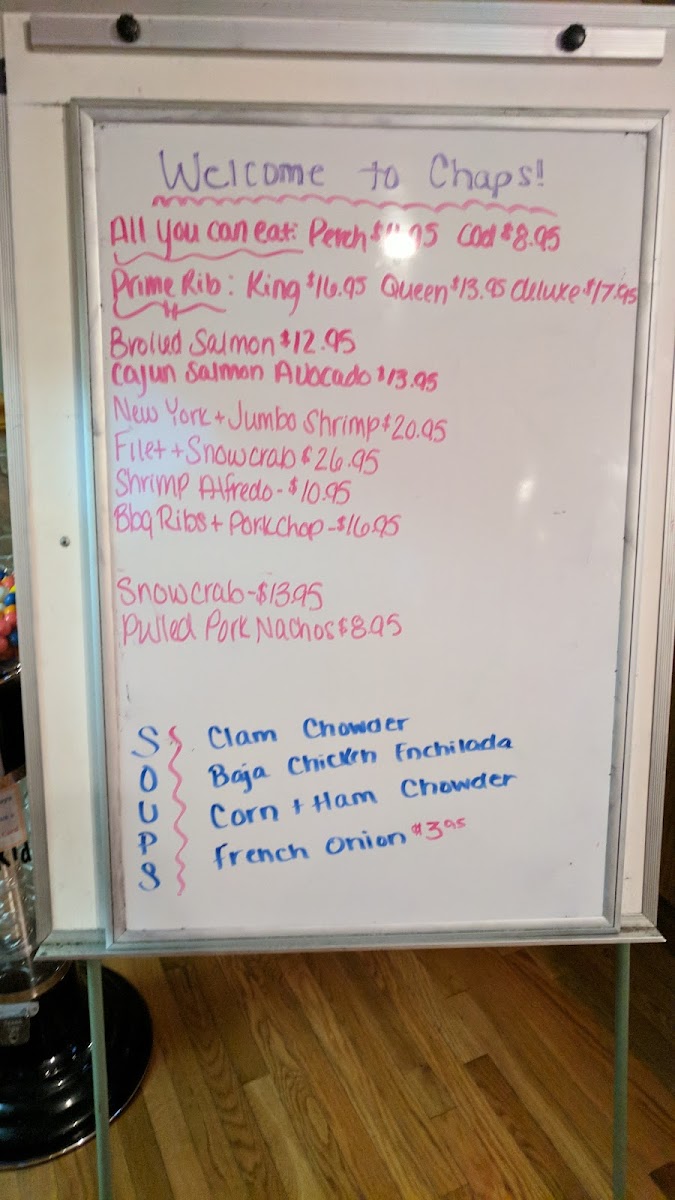 Welcome to Chaps!
All you can eat: Perch Cod $8.95
Prime Rib: King $16.95 Queen $13.95 deluxe $17.95
Broiled Salmon $12.95
Cajun Salmon Avocado $13.95
New York + Jumbo Shrimp $20.95
Filet + Snowcrab $26.95
Shrimp Alfredo - $10.95
Bbq Ribs + Porkchop - $16.95
Snowcrab - $13.95
Pulled Pork Nachos $8.95
SOUPS
Clam Chowder
Baja Chicken Enchilada
Corn + Ham Chowder
French Onion $3.95